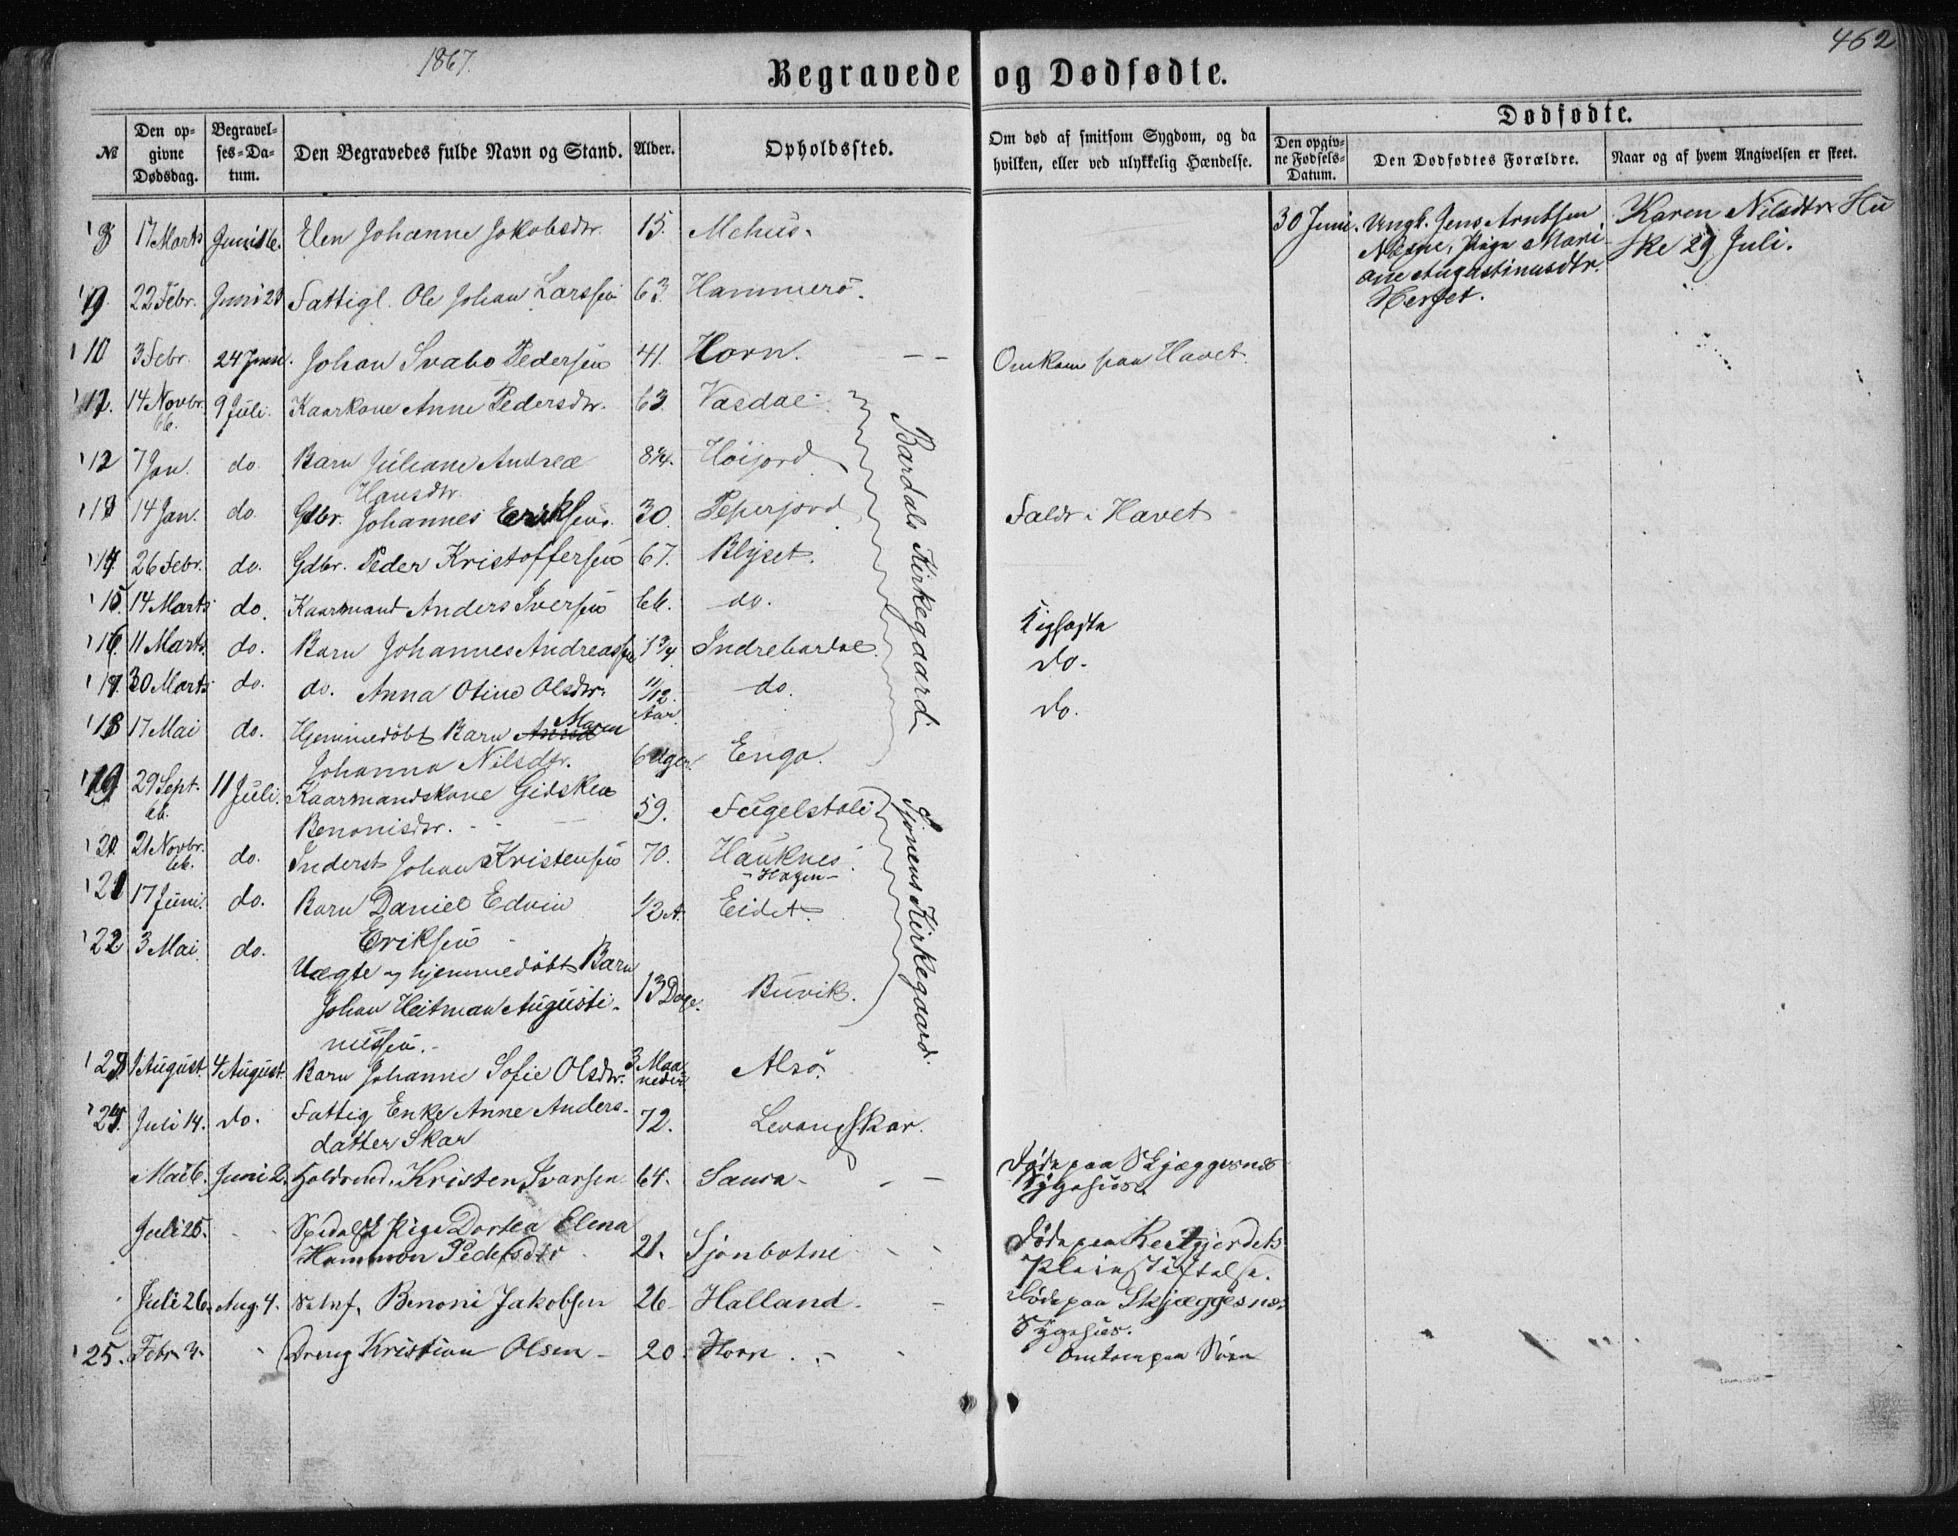 1867.
462
Begravede og Dødfødte.
№
Den opgivne Dødsdag.
Begravelses-Datum.
Den Begravedes fulde Navn og Stand.
Alder.
Opholdssted.
Om død af smitsom Sygdom, og da hvilken, eller ved ulykkelig Hændelse.
Dødfødte.
Den opgivne Fødsels-Datum.
Den Dødfødtes Forældre.
Naar og af hvem Angivelsen er skeet.
8 17 Marts Juni 16. Elen Johanne Jakobsdtr. 15. Mehus.
30 Juni. Ungk. Jens Arntsen
Pige Mari-
ane Augustinusdtr.
Karen Nilsdtr. Hu
ske 29 Juli.
9 22 Febr. Juni 21 Fattigl. Ole Johan Larssen 63. Hammerö.
10 3 Febr. 24 Juni. Johan Svabo Pedersen 41. Horn. — — Omkom paa Havet.
14 Novbr. 66. 9 Juli. Kaarkone Anne Pedersdtr. 63. Vasdal.
12 7 Jan. do. Barn Juliane Andrea
Hansdtr. Höijord
13 14 Jan. do. Gdbr. Johannes Eriksen. 30. Peperjord Faldt i Havet
14 26 Febr. do. Gdbr. Peder Kristoffersen 67. Blijset.
15. 14 Marts do. Kaarmand Anders Iversen 66. do.
16 11 Marts. do. Barn Johannes Andreassen 1 3/4. Indrebardal. Kighoste
17. 30 Marts do. do. Anna Otine Olsdtr. 11/12. Aar. do. do.
do.
18 17 Mai do. Hjemmedøbt Barn Maren
Johanna Nilsdtr. 6 Uger. Enga.
Bardals Kirkegaard
19 29 Sept. 66. 11 Juli. Kaarmandskone Gidsken
Benonisdtr. 59. Fugelstali
20. 21 Novbr. 66. do. Inderst Johan Kristensen 70. Hauknes
- Hagen -
21 17 Juni. do. Barn Daniel Edvin
Eriksen 1/2 A. Eidet.
22 3 Mai. do. Uægte og hjemmedøbt Barn
Johan Heitman Augusti-
nussen. 13 Dage. Buvik.
Sjonens Kirkegaard.
23. 1 August. 4 August. Barn Johanne Sofie Olsdtr. 3 Maa-
neder. Alsö.
24. Juli 14. do. Fattig Enke Anne Anders-
datter Skar 72. Levangskar.
Mai 6. Juni 2. Holdsmd. Kristen Ivarsen 64. Saura - - — Døde paa Skjæggesnes
Sygehus.
Juli 25. - - Spedalsk Pige Dortea Elena
Hammon Pedersdtr 21. Sjonbotne - - Døde paa Reitgjerdets
Pleiestiftelse.
Juli 26. Aug. 4. Benoni Jakobsen 26 - Halland. — Døde paa Skjæggesnes
Sygehus.
25. Febr. 3. - Dreng Kristian Olsen - 20. Horn. - - Omkom paa Søen